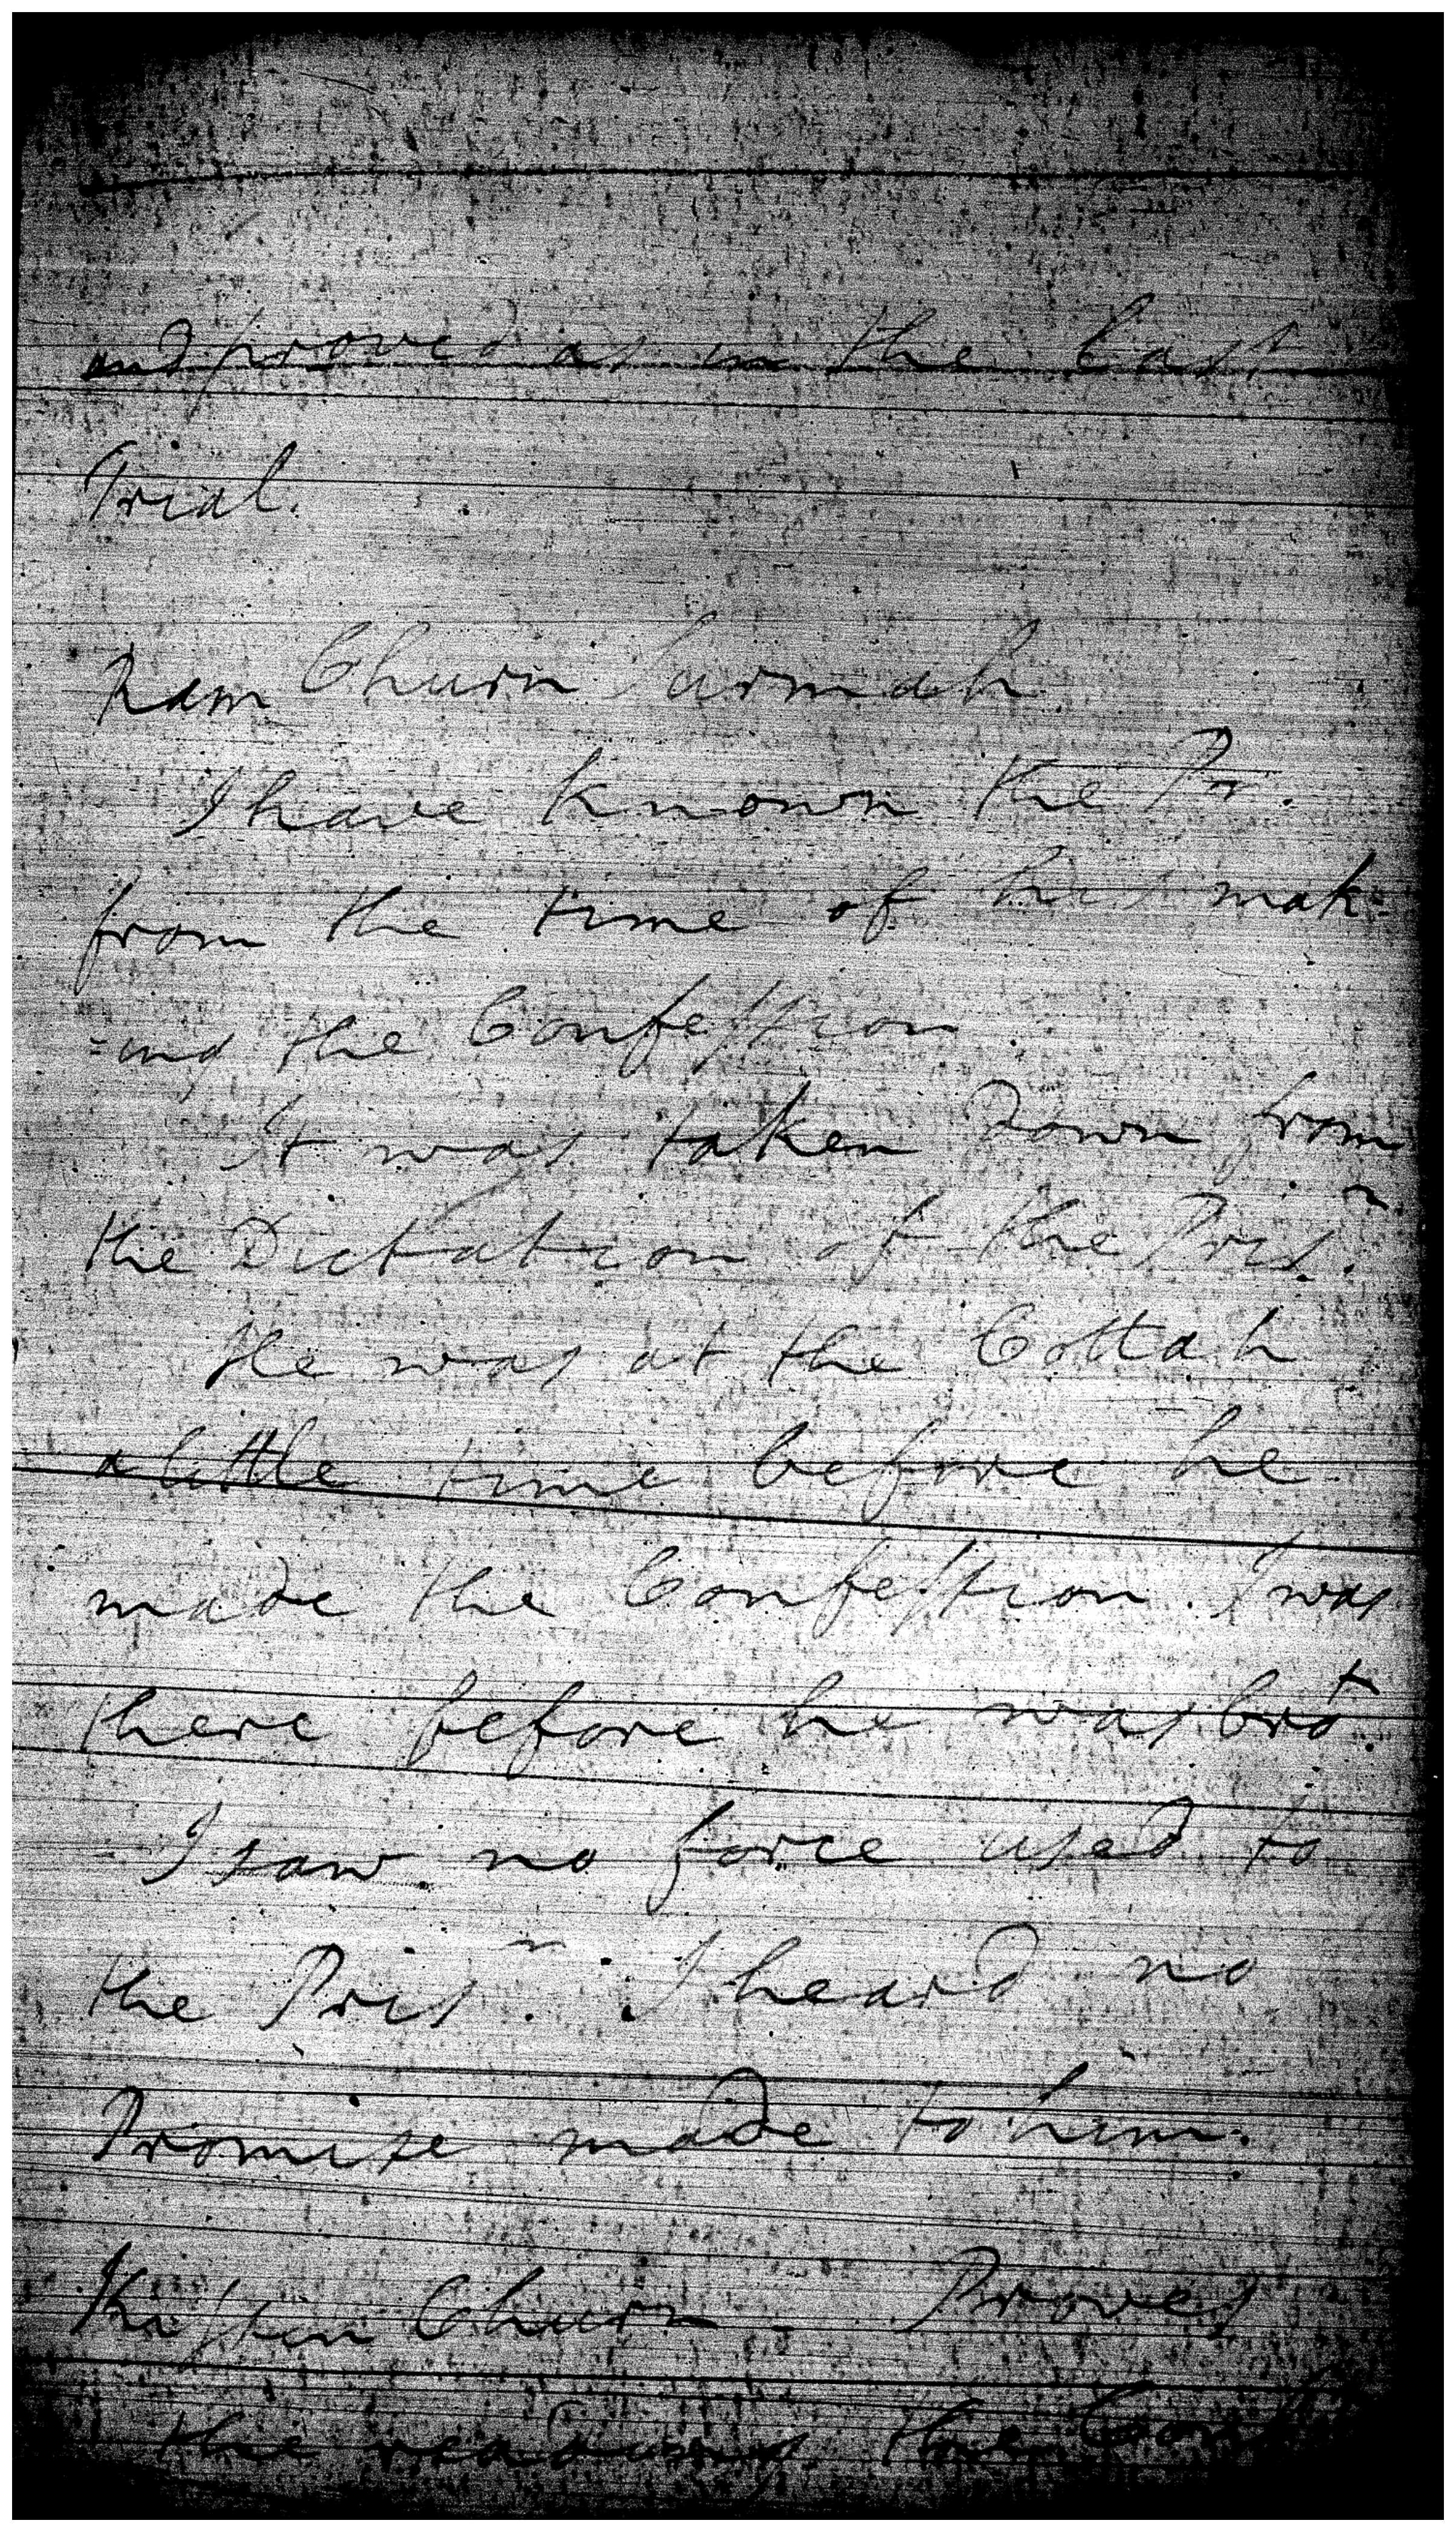 and proved as in the last
Trial.
Ram Churn Surmah
I have known the Pr.
from the time of his mak=
=ing the Confession.
It was taken Down from
the Dictation of the Prisr.
He was at the Cottah
a little time before he
made the Confession. I was
there before he was brot.
I saw no force used to
the Prisr. I heard no
Promise made to him.
Kissen Churn - Proves
the reading the